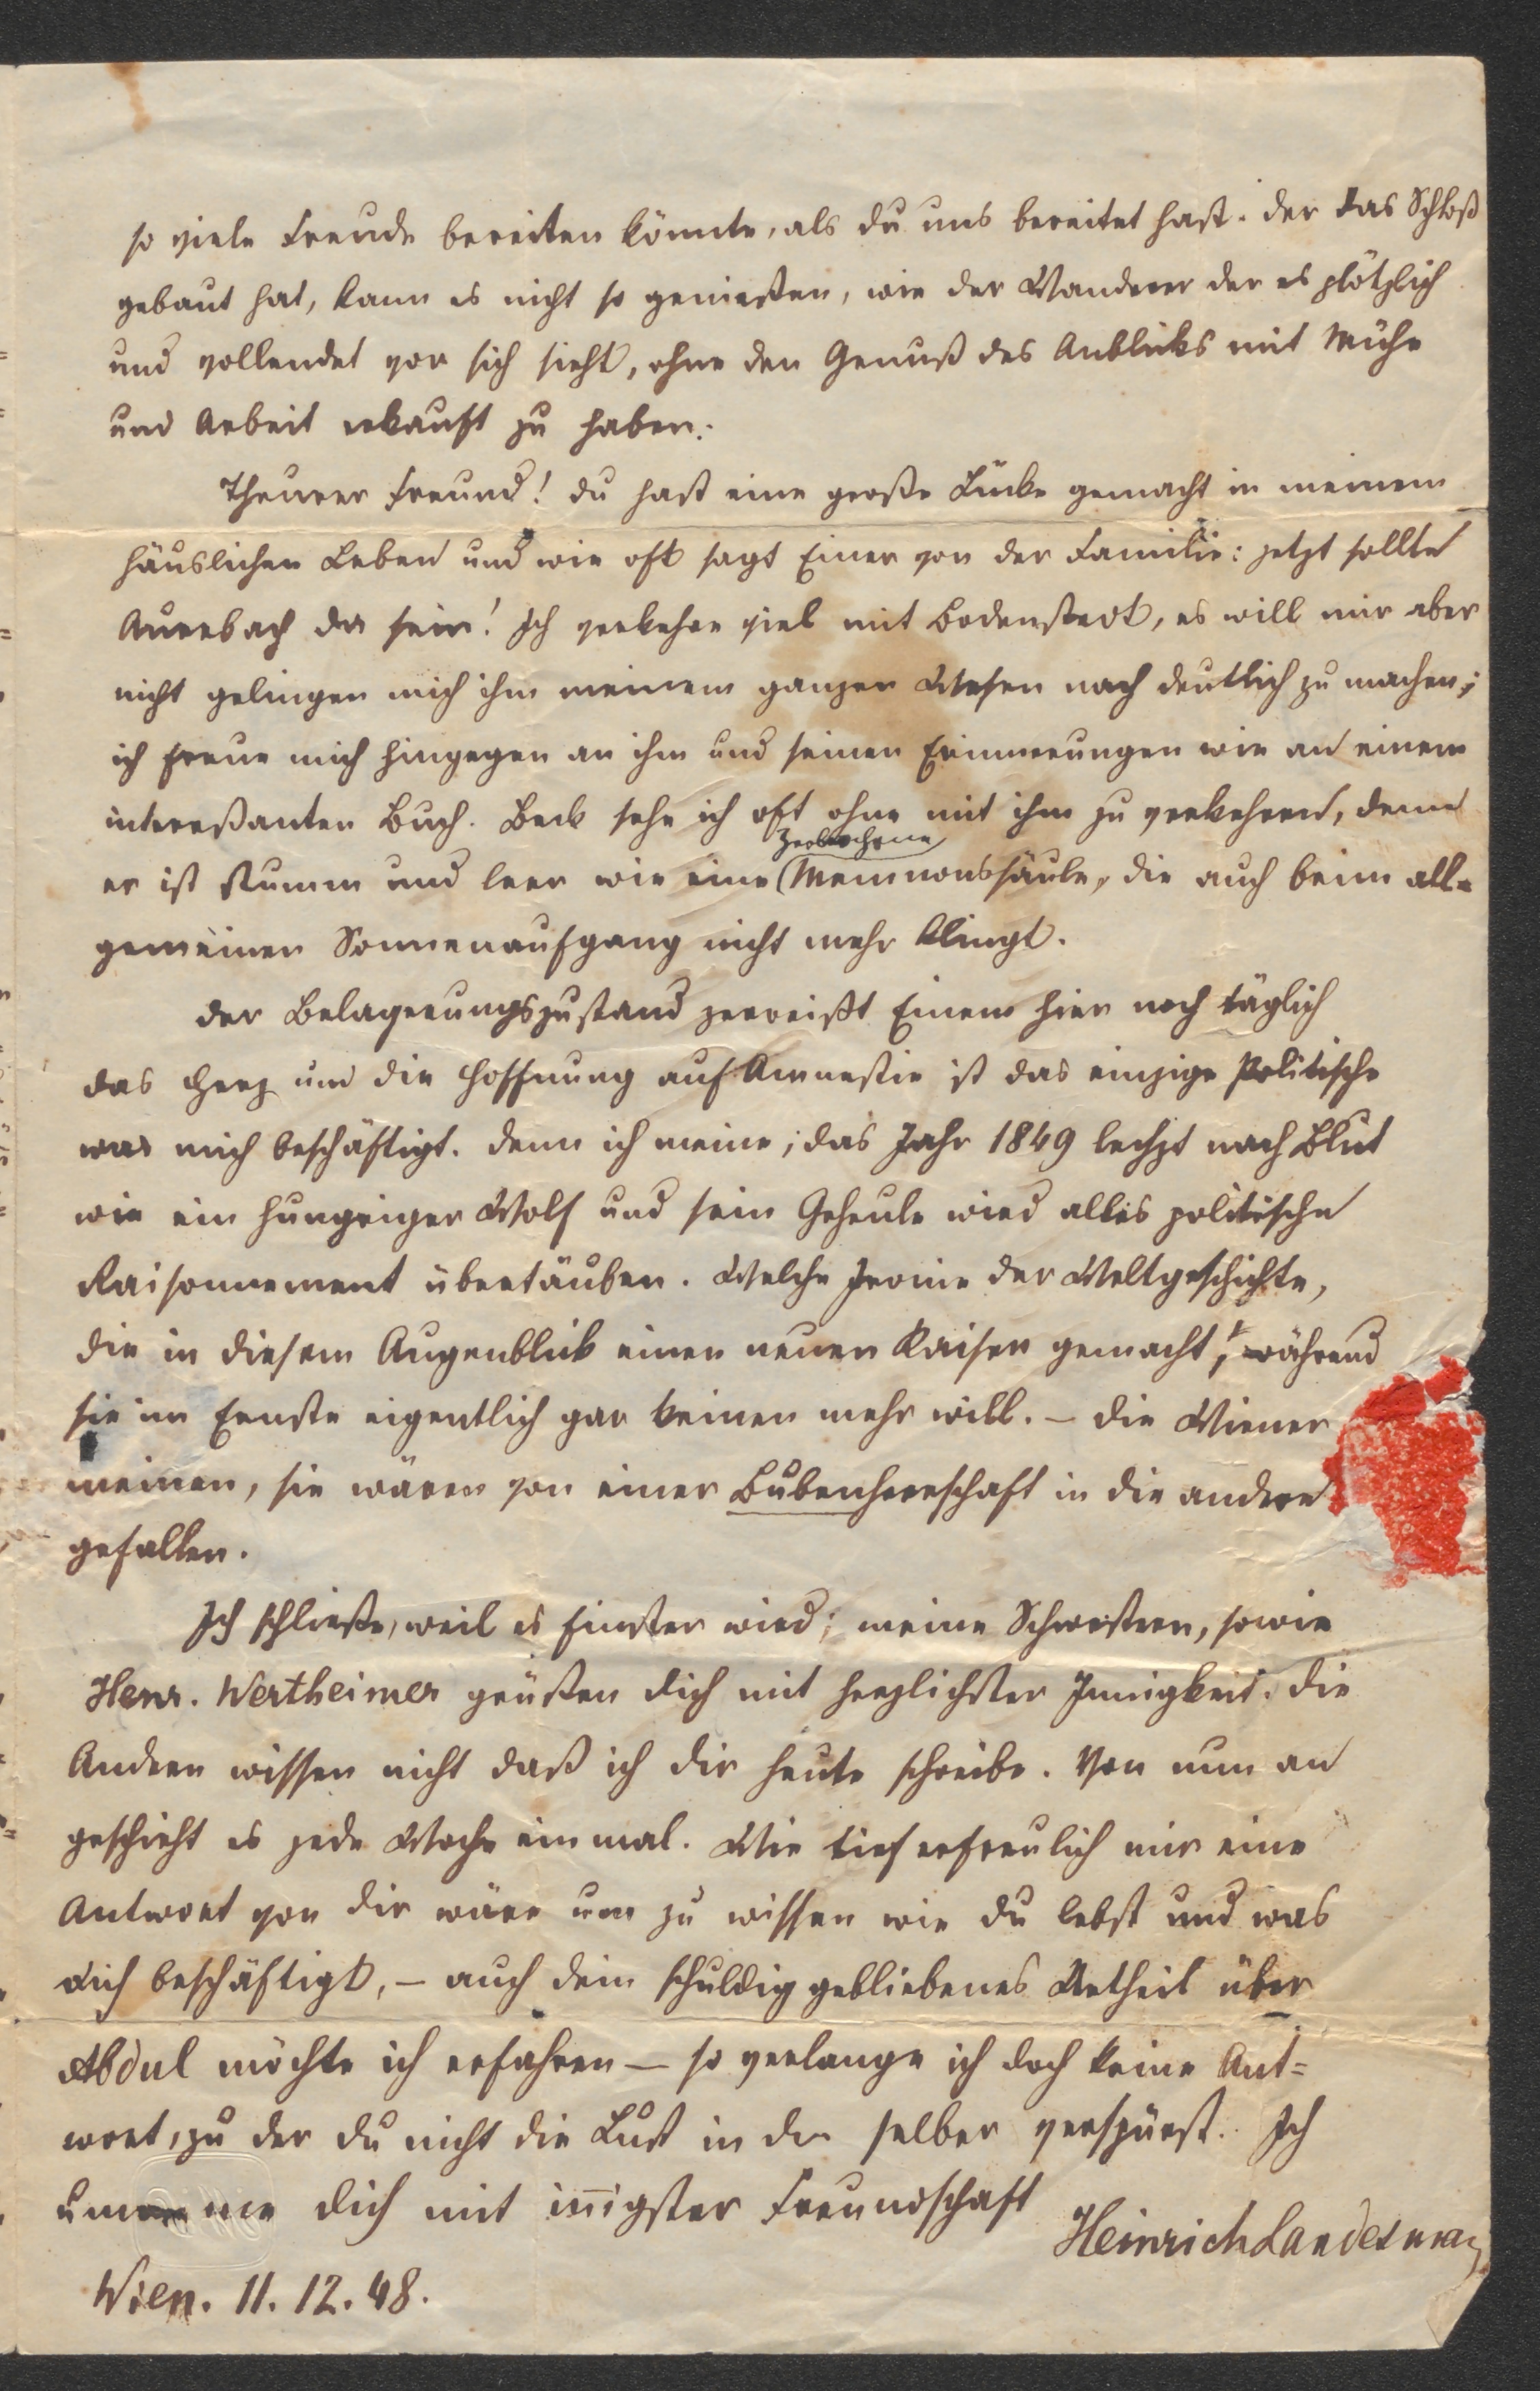 so viele Freude bereiten könnte, als du uns bereitet hast. Der das Schloß
gebaut hat, kann es nicht so genießen, wie der Wanderer der es plötzlich
und vollendet vor sich sieht, ohne den Genuß des Anblicks mit Mühe
und Arbeit erkauft zu haben.
Theurer Freund! du hast eine große Lücke gemacht in meinem
häuslichen Leben und wie oft sagt Einer von der Familie: jetzt sollte
Auerbach da sein! Ich verkehre viel mit Bodenstedt, es will mir aber
nicht gelingen mich ihm meinem ganzen Wesen nach deutlich zu machen;
ich freue mich hingegen an ihm und seinen Erinnerungen wie an einem
intereßanten Buch. Beck sehe ich oft ohne mit ihm zu verkehren, denn
zerbrochene
er ist stumm und leer wie eine Memnonssäule, die auch beim all=
gemeinen Sonnenaufgang nicht mehr klingt.
Der Belagerungszustand zerreißt Einem hier noch täglich
das Herz und die Hoffnung auf Amnestie ist das einzige Politische
was mich beschäftigt. Denn ich meine, das Jahr 1849 lechzt nach Blut
wie ein hungriger Wolf und sein Geheule wird alles politische
Raisonnement übertäuben. Welche Ironie der Weltgeschichte,
die in diesem Augenblick einen neuen Kaiser gemacht, während
sie im Ernste eigentlich gar keinen mehr will. – Die Wiener
meinen, sie wären von einer Bubenherrschaft in die andere
gefallen.
Ich schließe, weil es finster wird; meine Schwestern, sowie
Henr. Wertheimer grüßen dich mit herzlichster Innigkeit. Die
Andern wissen nicht daß ich dir heute schreibe. Von nun an
geschieht es jede Woche einmal. Wie tief erfreulich mir eine
Antwort von dir wäre um zu wissen wie du lebst und was
dich beschäftigt, – auch dein schuldig gebliebenes Urtheil über
Abdul möchte ich erfahren – so verlange ich doch keine Ant=
wort, zu der du nicht die Lust in dir selber verspürst. Ich
umarme dich mit innigster Freundschaft
Heinrich Landesman
Wien. 11. 12. 48.